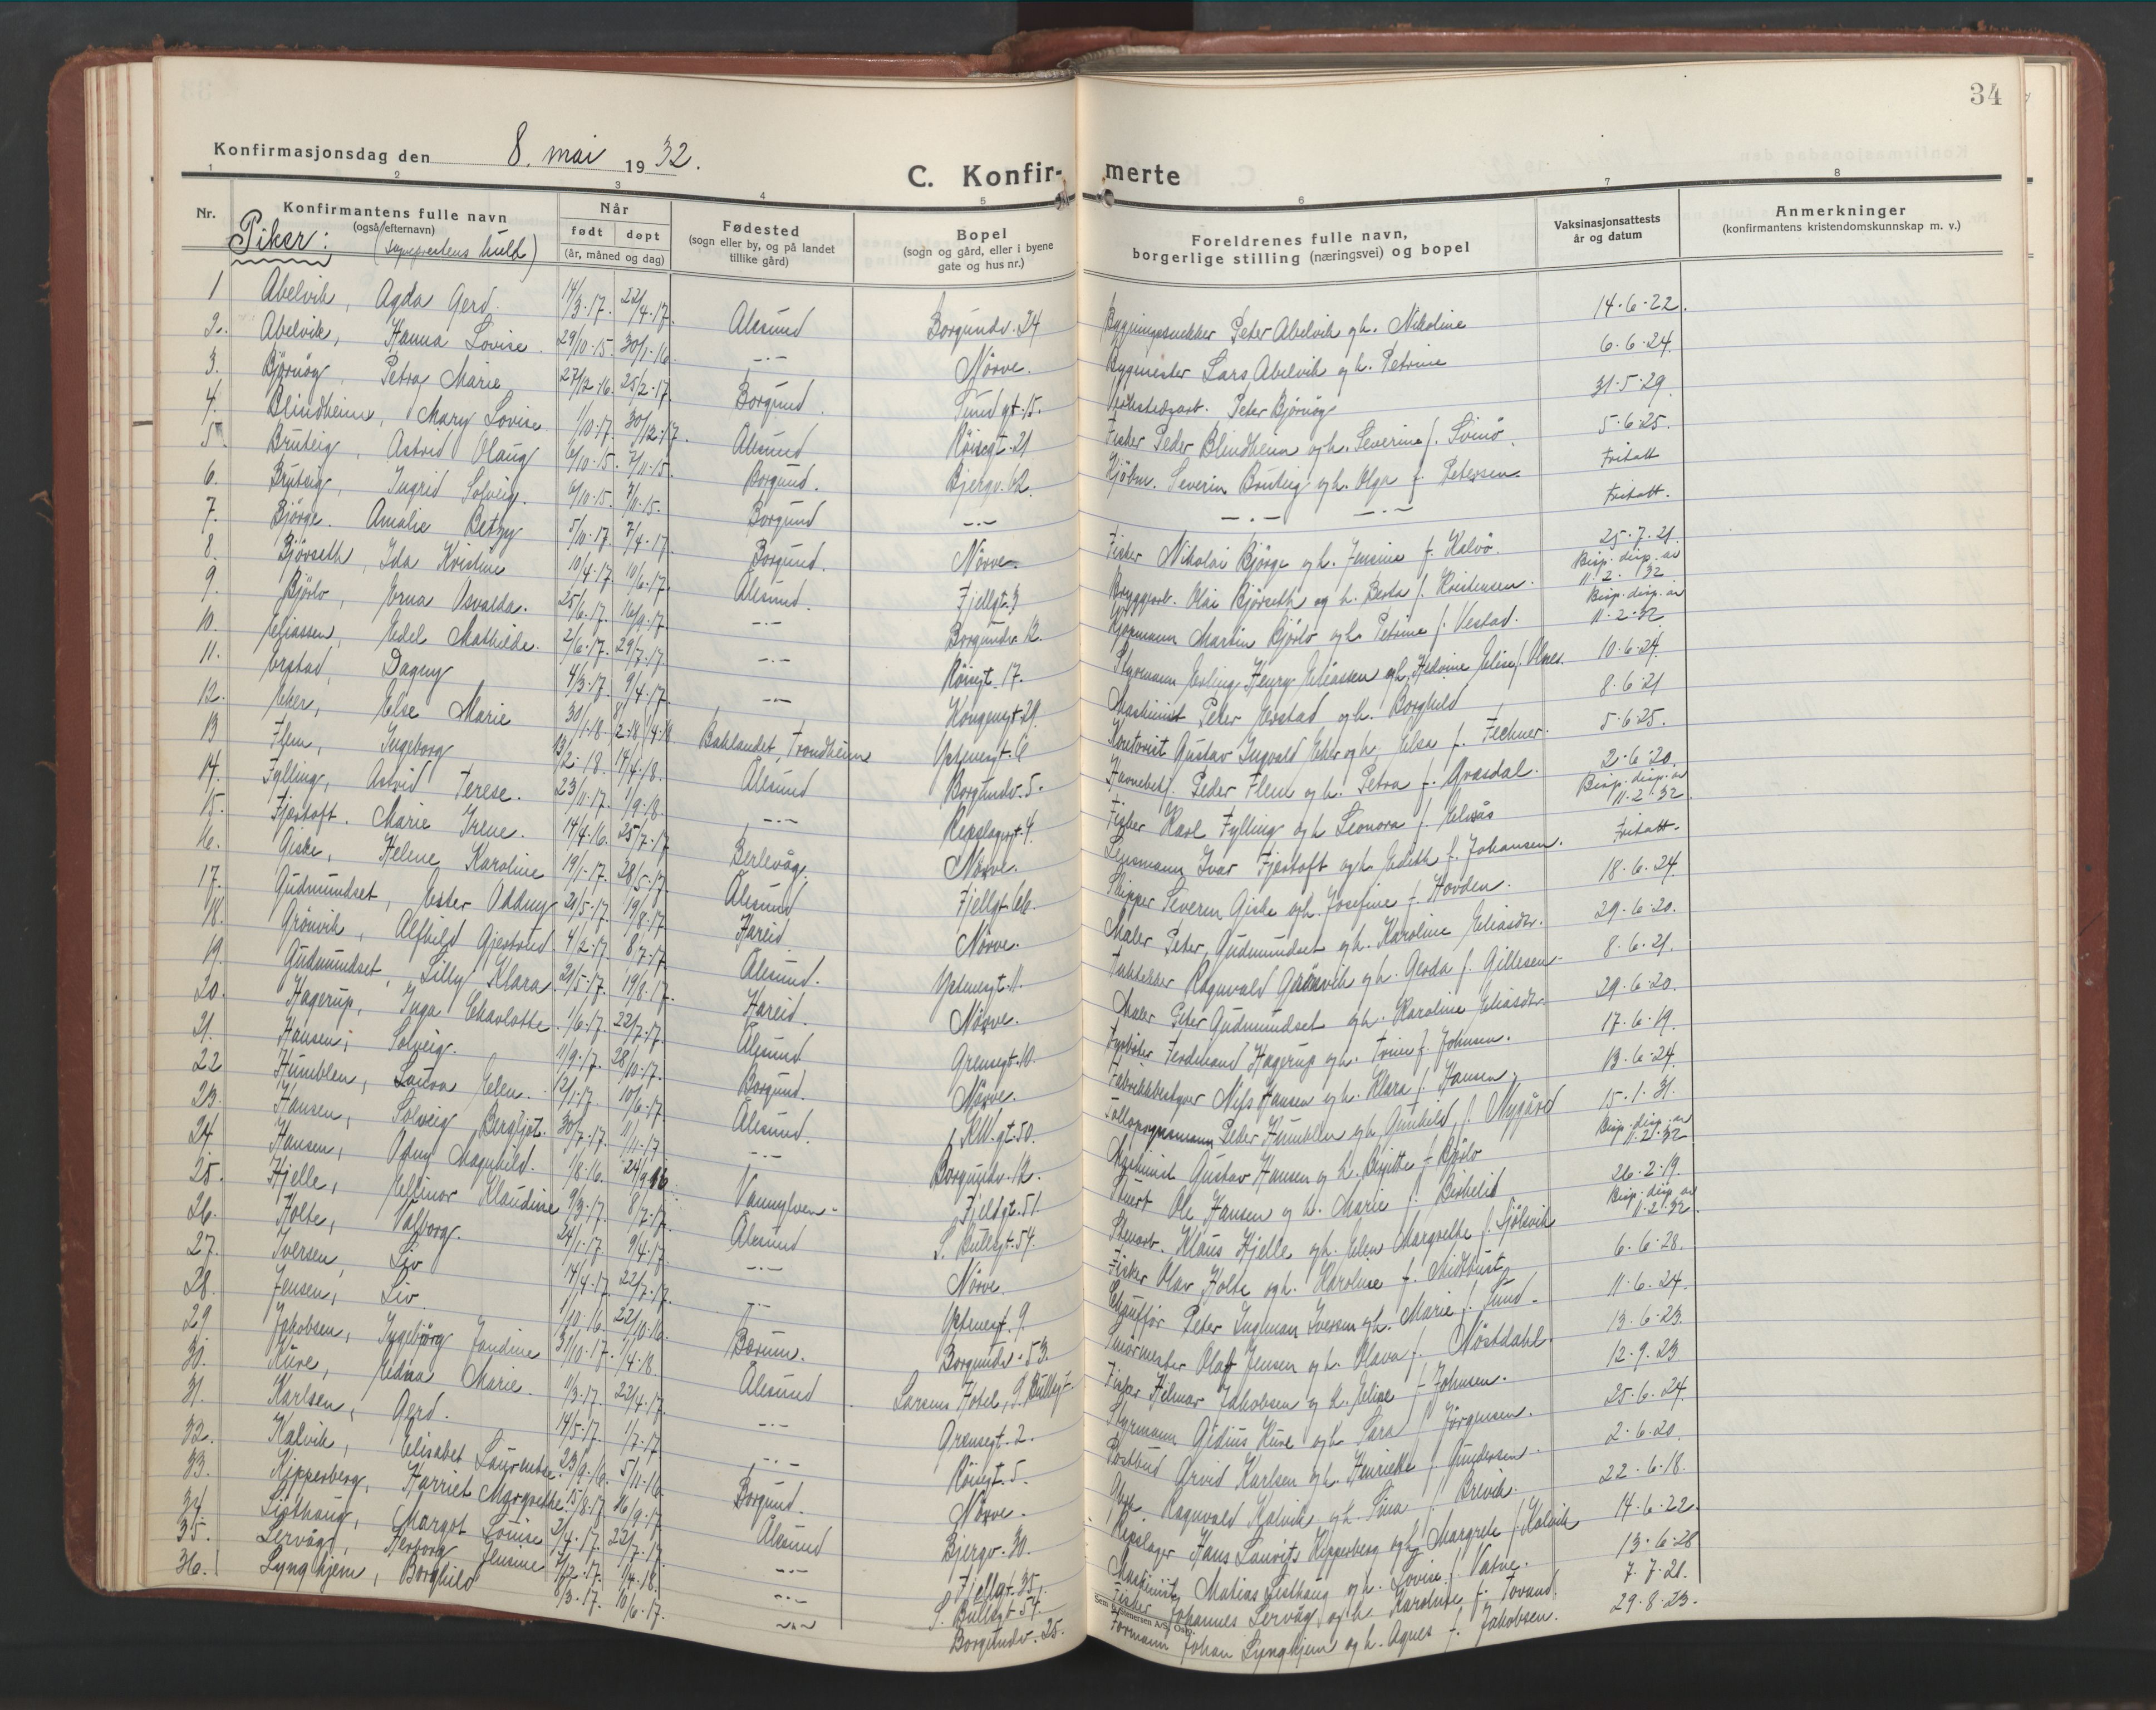 34
Konfirmasjonsdag den 8. mai 1932.
C. Konfir- merte
1 2 3 4 5 6 7 8
Nr. Konfirmantens fulle navn (også efternavn) Når født døpt (år, måned og dag) Fødested (sogn eller by, og på landet tillike gård) Bopel (sogn og gård, eller i byene gate og hus nr.) Foreldrenes fulle navn, borgerlige stilling (næringsvei) og bopel Vaksinasjonsattests år og datum Anmerkninger (konfirmantens kristendomskunnskap m. v.)
Piker: (sogneprestens kull)
1 Abelvik, Agda Gerd. 14/3·17. 22/4·17. Ålesund Borgundv. 24 Bygningssnekker Peter Abelvik og h. Nikoline 14·6·22.
2. Abelvik, Hanna Lovise. 29/10·15. 30/1·16. —·— Nörve. Bygmester Lars Abelvik og h. Petrine 6·6·24.
3. Björnöy, Petra Marie 27/12·16. 25/2·17. Borgund. Sundgt. 15. Verkstedsarb. Peter Björnöy 31·5·29.
4. Blindheim, Mary Lovise 1/10·17. 30/12·17. Ålesund Röisegt. 21 Fisker Peder Blindheim og h. Severine f. Svinö. 5·6·25.
5 Bruteig, Astrid Olaug 6/10·15. 7/11·15. Borgund. Bjergv. 62. Kjöbm. Severin Bruteig og h. Olga f. Petersen Fritatt
6. Bruteig, Ingrid Solveig. 6/10·15. 7/11·15. Borgund —·— —·— —·— Fritatt.
7. Björge. Amalie Betzy 5/10·17. 7/4·17. Borgund. Nörve. Fisker Nikolai Björge og h. Jensine f. Kalvö. 25·7·21.
8. Björseth, Ida Kristine 10/4·17. 10/6·17. Ålesund. Fjellgt. 3 Bryggearb. Olai Björseth og h. Berta f. Kristensen. Bisp. disp. av 11·2·32
9. Björlo, Erna Osvalda. 25/6·17. 16/9·17. —·— Borgundv. 12. Kjöpmann Martin Björlo og h. Petrine f. Vestad. Bisp. disp. av 11·2·32
10. Eliassen, Edel Mathilde. 2/6·17. 29/7·17. —·— Röisegt. 17. Styrmann Erling Henry Eliassen og h. Hedvine Elise f. Olnes. 10·6·24.
11. Erstad, Dagny 4/3·17. 9/4·17. —·— Kongensgt. 29. Maskinist Peter Erstad og h. Borghild 8·6·21
12. Eker, Else Marie 30/1·18. Baklandet, Trondheim Ystenesgt. 6 Kontorist Gustav Ingvald Eker og h. Elsa f. Fechner. 5·6·25.
13 Flem, Ingeborg 13/2·18. 14/4·18. Ålesund Borgundv. 5. Havnebetj. Peder Flem og h. Petra f. Arasdal. 2·6·20.
14. Fylling, Astrid Terese. 23/11·17. 1/9·18. —·— Repslagergt. 4. Fisker Karl Fylling og h. Leonora f. Elisås Bisp. disp. av 11·2·32.
15. Fjörtoft. Marie Irene. 14/4·16. 25/7·17 Berlevåg. Nörve. Lensmann Ivar Fjörtoft og h. Edith f. Johansen. Fritatt.
16. Giske, Helene Karoline 19/1·17. 28/5·17. Ålesund Fjellgt. 66. Skipper Severin Giske og h. Josefine f. Hovden. 18·6·24.
17. Gudmundset, Ester Oddny 21/5·17. 19/8·17. Hareid. Nörve. Maler Peter Gudmundset og h. Karoline Eliasdtr. 29·6·20.
18. Grönvik, Alfhild Gjertrud 4/2·17. 8/7·17. Ålesund. Ystenesgt. 11. Taktekker Ragnvald Grönvik og h. Gerda f. Gillesen. 8·6·21.
19. Gudmundset, Lilly Klara. 21/5·17. 19/8·17. Hareid. Nörve. Maler Peter Gudmundset og h. Karoline Eliasdtr. 29·6·20.
20. Hagerup, Inga Charlotte 1/6·17. 22/7·17. Ålesund Grensegt. 10. Fyrböter Ferdinand Hagerup og h. Trine f. Johnsen. 17·6·19.
21. Hansen, Solveig. 11/9·17. 28/10·17. Borgund. Nörve. Fabrikkbestyrer Nils Hansen og h. Klara f. Hansen. 13·6·24.
22 Humblen, Laura Elen. 12/1·17. 10/6·17 Ålesund. KW.gt. 50. Tollopsynsmann Peder Humblen og h. Gunhild f. Nygård 15·1·31.
23. Hansen, Solveig Bergljot. 30/7·17. 11/11·17 —·— Borgundv. 12. Maskinist Gustav Hansen og h. Birgitte f. Björlo Bisp. disp. av 11·2·32
24 Hansen, Odny Magnhild. 1/8·16. 24/9·16. Vannylven. Fjeldgt. 51. Stuert Ole Hansen og h. Marie f. Birkelid 26·2·19.
25. Hjelle, Ellinor Klaudine 9/3·17. 8/7·17. Ålesund S. Bullsgt. 54. Stenarb. Klaus Hjelle og h. Elen Margrethe f. Sjölsvik Bisp. disp. av 11·2·32.
26. Holte, Valborg. 24/1·17. 9/4·17. —·— Nörve. Fisker Olav Holte og h. Karoline f. Midtbust 6·6·28.
27. Iversen, Liv 14/4·17. 22/7·17. —·— Ystenesgt. 9. Chaufför Peter Ingman Iversen og h. Marie f. Sund. 11·6·24.
28. Jensen, Liv. 1/10·16. 22/10·16. Bærum. Borgundv. 53. Snörmester Olaf Jensen og h. Olava f. Nöstdahl. 13·6·23.
29 Jakobsen, Ingebörg Jondine 31/10·17. 1/4·18. Ålesund Larsens Hotel, S. Bullsgt. Fisker Hilmar Jakobsen og h. Eline f. Johnsen. 12·9·23
30. Kure, Edna Marie. 11/3·17. 22/4·17. —·— Grensegt. 2. Styrmann Gidius Kure og h. Sara f. Jörgensen. 25·6·24.
31. Karlsen, Gerd. 14/5·17. 1/7·17 —·— Röisegt. 5. Postbud Arvid Karlsen og h. Henrikke f. Gundersen. 2·6·20.
32. Kalvik, Elisabet Laurentse. 23/9·16. 5/11·16. Borgund. Nörve. Ragnvald Kalvik og h. Sina f. Brevik. 22·6·18.
33. Kipperberg, Harriet Margrethe. 15/8·17. 16/9·17. Ålesund Bjergv. 30. Repslager Hans Laurits Kipperberg og h. Margrete f. Kalvik 14·6·22.
34. Listhaug, Margot Louise 2/4·17. 22/7·17. —·— Fjellgt. 35. Maskinist Matias Listhaug og h. Lovise f. Vatne. 13·6·28
35. Lervåg, Herborg Jensine 7/12·17. 1/4·18. —·— S. Bullsgt. 54. Fisker Johannes Lervåg og h. Karoline f. Tovund. 7·7·21.
36. Lynghjem, Borghild 8/3·17. 10/6·17. —·— Borgundv. 25. Formann Johan Lynghjem og h. Agnes f. Jakobsen. 29·8·23.
Sem & Stenersen A/S, Oslo.